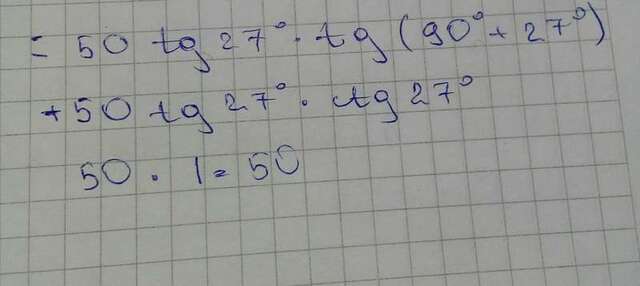 = 50 tg 27° · tg (90° + 27°)
+ 50 tg 27° · ctg 27°
50 · 1 = 50